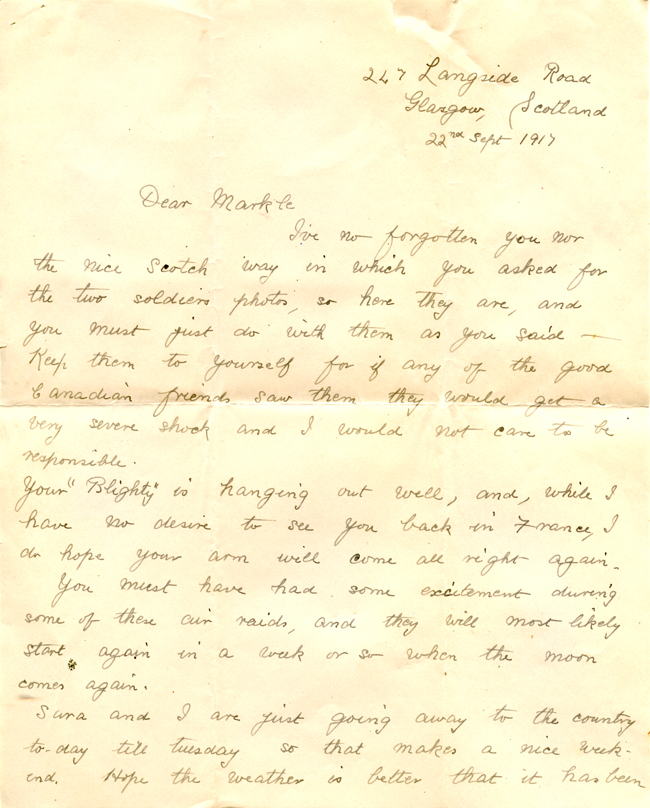 247 Langside Road
Glasgow, Scotland
22nd Sept 1917
Dear Markle
I've no forgotten you nor
the nice Scotch way in which you asked for
the two soldiers photos, so here they are, and
you must just do with them as you said —
Keep them to yourself for if any of the good
Canadian friends saw them they would get a
very severe shock and I would not care to be
responsible.
Your "Blighty" is hanging out well, and, while I
have no desire to see you back in France, I
do hope your arm will come all right again.
You must have had some excitement during
some of these air raids, and they will most likely
start again in a week or so when the moon
comes again.
Sara and I are just going away to the country
to-day till tuesday so that makes a nice week-
end. Hope the weather is better that it has been